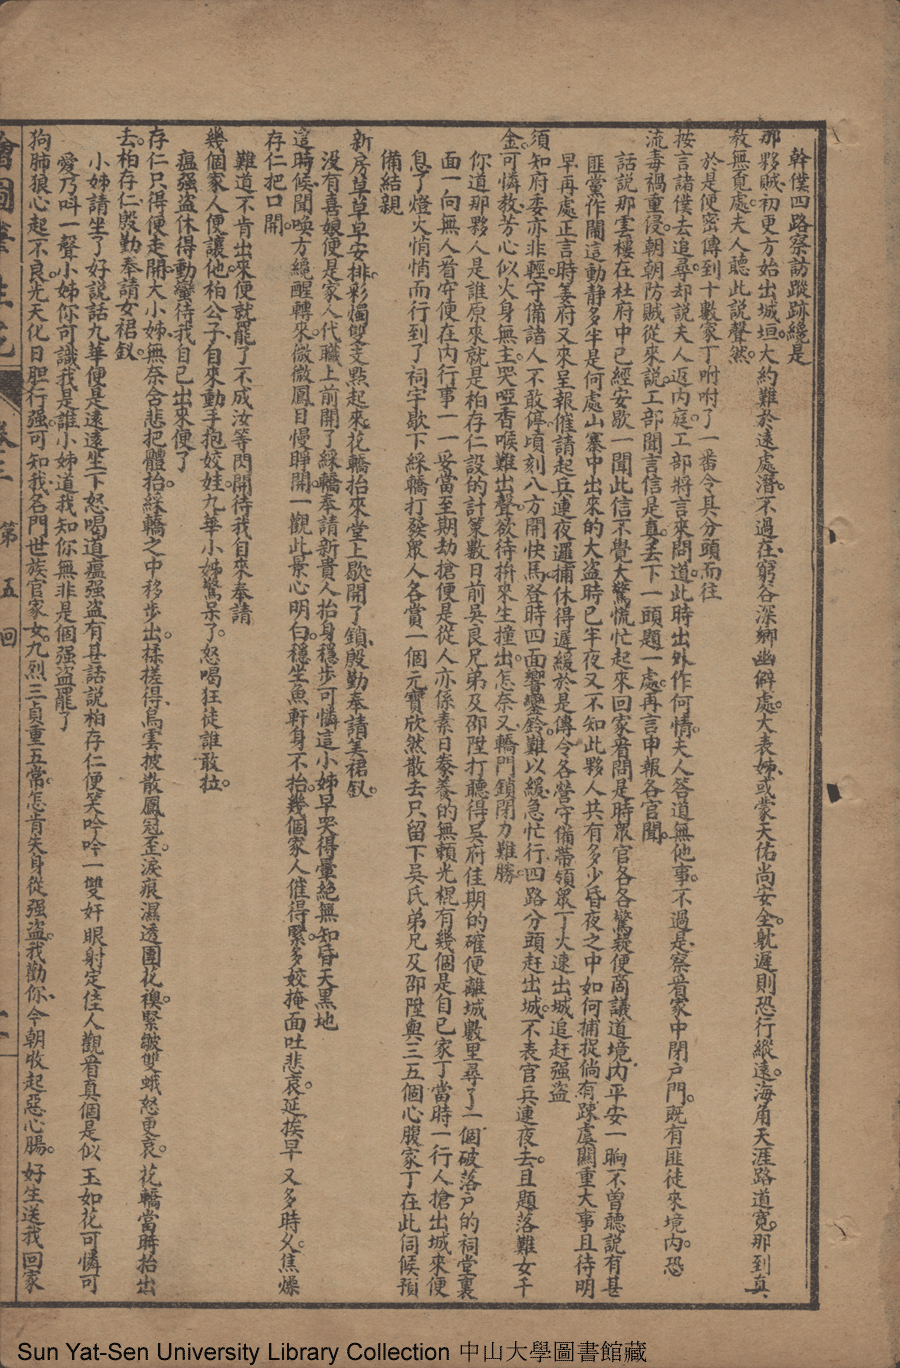 幹僕四路察訪蹤跡纔是
那夥賊初更方始出城垣。大約難於遠處潛。不過在窮谷深鄉幽僻處。大表姊或蒙天佑尚安全。躭遲則恐行縱遠。海角天涯路道寬。那到真
教無覔處夫人聽此說聲然。
於是便密傳到十數家丁咐咐了一番令其分頭而往
按言諸僕去追尋。却說夫人返内庭。工部將言來問道。此時出外作何情。夫人答道無他事。不過是察看家中閉戶門。既有匪徒來境内。恐
流毒禍重侵。朝朝防賊從來說。工部聞言信是真。丟下一頭題一處。再言申報各官聞。
話說那雲樓在杜府中已經安歇一聞此信不覺大驚慌忙起來回家看問是時眾官各各驚疑便商議道境内平安一晌不曾聽説有甚
匪黨作鬧這動静多半是何處山寨中出來的大盜時已半夜又不知此夥人共有多少昏夜之中如何捕捉倘有疎虞關重大事且待明
早再處正言時姜府又來呈報催請起兵連夜邏捕休得遲緩於是傳令各營守備帶領眾丁火速出城追赶强盜
須知府委亦非輕守備諸人不敢停頃刻八方開快馬登時四面響鑾鈴。難以緩急忙行。四路分頭赶出城。不表官兵連夜去。且題落難女千
金。可憐教芳心似火身無主。哭啞香喉難出聲。欲待拚來生撞出。怎奈又轎門鎖閉力難勝。
你道那夥人是誰原來就是柏存仁設的計策數日前吳良兄弟及邵陞打聽得吳府佳期的確便離城數里尋了一個破落户的祠堂裏
面一向無人看守便在内行事一一妥當至期劫搶便是從人亦係素日豢養的無賴光棍有幾個是自已家丁當時一行人搶出城來便
息了燈火悄悄而行到了祠宇歇下綵轎打發眾人各賞一個元寶欣然散去只留下吳氏弟兄及邵陞與三五個心腹家丁在此伺候預
備結親
新房草草早安排。彩燭雙雙點起來。花轎抬來堂上歇。開了鎖殷勤奉請美裙釵。
没有喜娘便是家人代職上前開了綵轎奉請新貴人抬身穩步可憐這小姊早哭得暈絕無知昏天黑地
這時候。聞喚方纔醒轉來。微微鳳目慢睜開。一觀此景心明白。穩坐魚軒身不抬。幾個家人催得緊。多姣掩面吐悲哀。延挨早又多時久。焦燥
存仁把口開。
難道不肯出來便就罷了不成汝等閃開待我自來奉請
幾個家人便讓他。柏公子自來動手抱姣娃。九華小姊驚呆了。怒喝狂徒誰敢拉。
瘟强盜休得動蠻待我自已出來便了
存仁只得便走開。大小姊無奈含悲把體抬。綵轎之中移步出。揉搓得烏雲披散鳳冠歪。淚痕濕透團花襖。緊皺雙蛾怒更哀。花轎當時抬出
去。柏存仁殷勤奉請女裙釵。
小姊請坐了好說話九華便是遠遠坐下怒喝道瘟强盜有甚話説柏存仁便笑吟吟一雙奸眼射定佳人觀看真個是似玉如花可憐可
愛乃呌一聲小姊你可識我是誰小姊道我知你無非是個强盜罷了
狗肺狼心起不良。光天化日胆行强。可知我名門世族官家女。九烈三貞重五常。怎肯失身從强盜。我勸你。今朝收起惡心腸。好生送我回家
繪圖筆生花 卷三 第五回
Sun Yat-Sen University Library Collection 中山大學圖書館藏